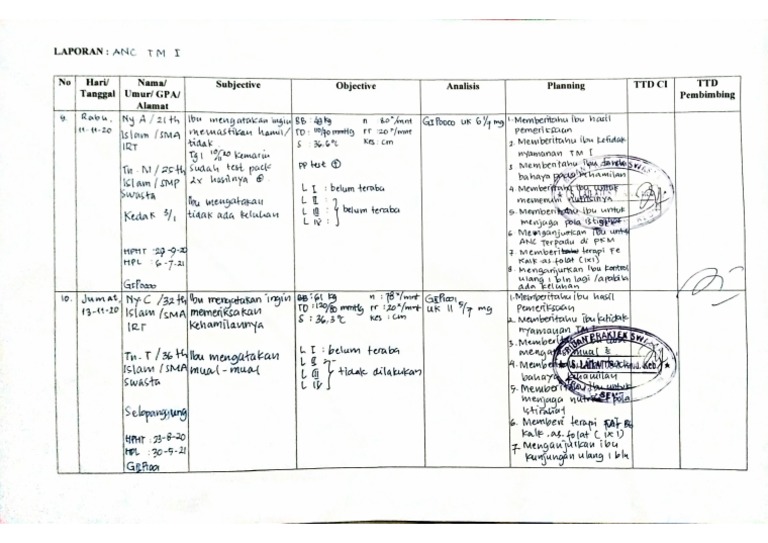 LAPORAN : ANC TM I
No
Hari/ Tanggal
Nama/ Umur/ GPA/ Alamat
Subjective
Objective
Analisis
Planning
TTD CI
TTD Pembimbing
9.
Rabu,
11-11-20
Ny A / 21 th
Islam / SMA
IRT
Tn. M / 25 th
Islam / SMP
Swasta
Kedak 3/1
HPHT : 29-9-20
HPL : 6-7-21
Ibu mengatakan ingin
memastikan hamil/
tidak
Tgl 10/20 kemarin
sudah test pack
2x hasilnya ⊕.
Ibu mengatakan
tidak ada keluhan
n : 80 x/mnt
rr : 20 x/mnt
S : 36,6°c
Kes : cm
PP test ⊕
L I : belum teraba
L II :
L III : belum teraba
L IV :
UK 6 mg
1. Memberitahu ibu hasil
pemeriksaan
2. Memberitahu ibu ketidak
nyamanan TM I
3. Memberitahu ibu
bahaya pada kehamilan
4. Memberitahu ibu untuk
memenuhi nutrisinya
5. Memberitahu ibu untuk
menjaga pola istirahat
6. Menganjurkan ibu untuk
ANC Terpadu di PKM
7. Memberi terapi Fe
Kalk . as. folat (1x1)
8. Menganjurkan ibu kontrol
ulang 1 bln lagi / apabila
ada keluhan
10.
Jumat,
13-11-20
Ny C / 32 th
Islam / SMA
IRT
Tn. T / 36 th
Islam / SMA
Swasta
Selopanggung
HPHT : 23-8-20
HPL : 30-5-21
Ibu mengatakan ingin
memeriksakan
kehamilannya
Ibu mengatakan
mual-mual
BB : 61 kg
n : 78 x/mnt
TD : 120/80 mmHg
rr : 20 x/mnt
S : 36,3°c
Kes : cm
L I : belum teraba
L II :
L III : tidak dilakukan
L IV
UK 11 5/7 mg
1. Memberitahu ibu hasil
Pemeriksaan
2. Memberitahu ibu ketidak
nyamanan TM I
3.
mual
4.
bahaya kehamilan
5. Memberitahu ibu untuk
menjaga pola
istirahat
6. Memberi terapi
Kalk. as. folat (1x1)
7. Menganjurkan ibu
kunjungan ulang 1 bln